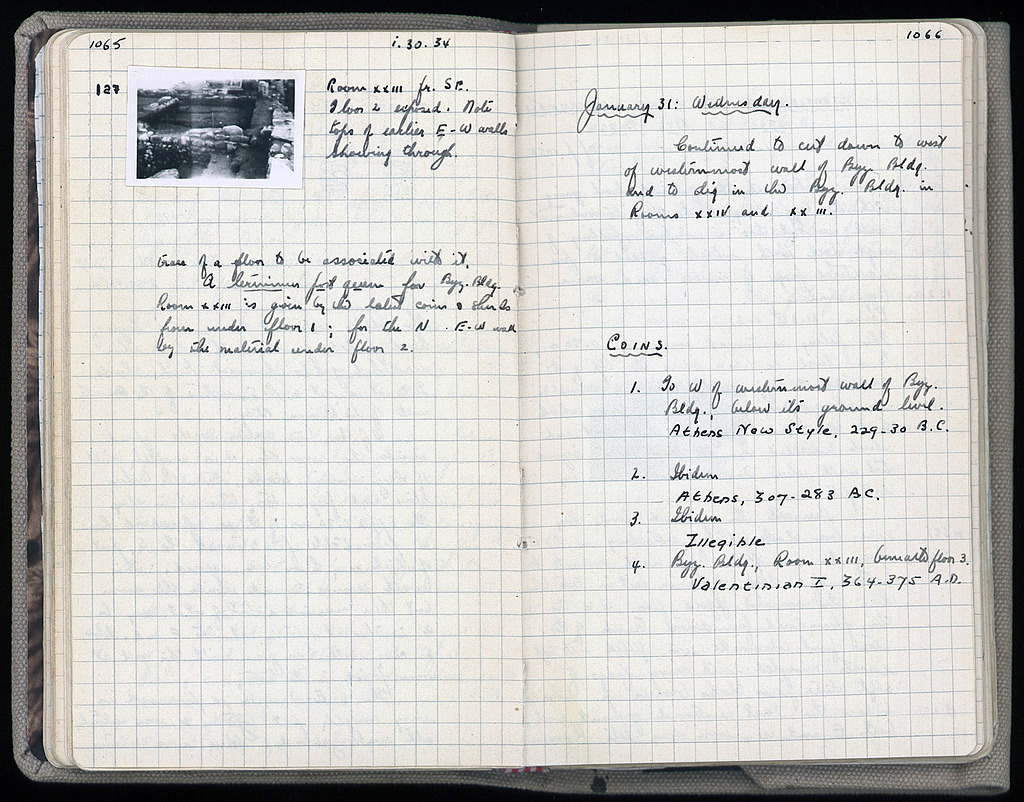 1065
i.30.34
127
Room xxiii fr. SE.
Floor 2 exposed. Note
tops of earlier E-W walls
showing through.
trace of a floor to be associated with it.
A terminus post quem for Byz. Bldg.
Room xxiii is given by the latest coins & sherds
from under floor 1; for the N. E-W wall
by the material under floor 2.
1066
January 31: Wednesday.
Continued to cut down to west
of westernmost wall of Byz. Bldg.
and to dig in the Byz. Bldg. in
Rooms xxiv and xxiii.
COINS.
1. To W of westernmost wall of Byz.
Bldg., below its ground level.
Athens New Style, 229-30 B.C.
2. Ibidem
Athens, 307-283 B.C.
3. Ibidem
Illegible
4. Byz. Bldg., Room xxiii, beneath floor 3.
Valentinian I, 364-375 A.D.